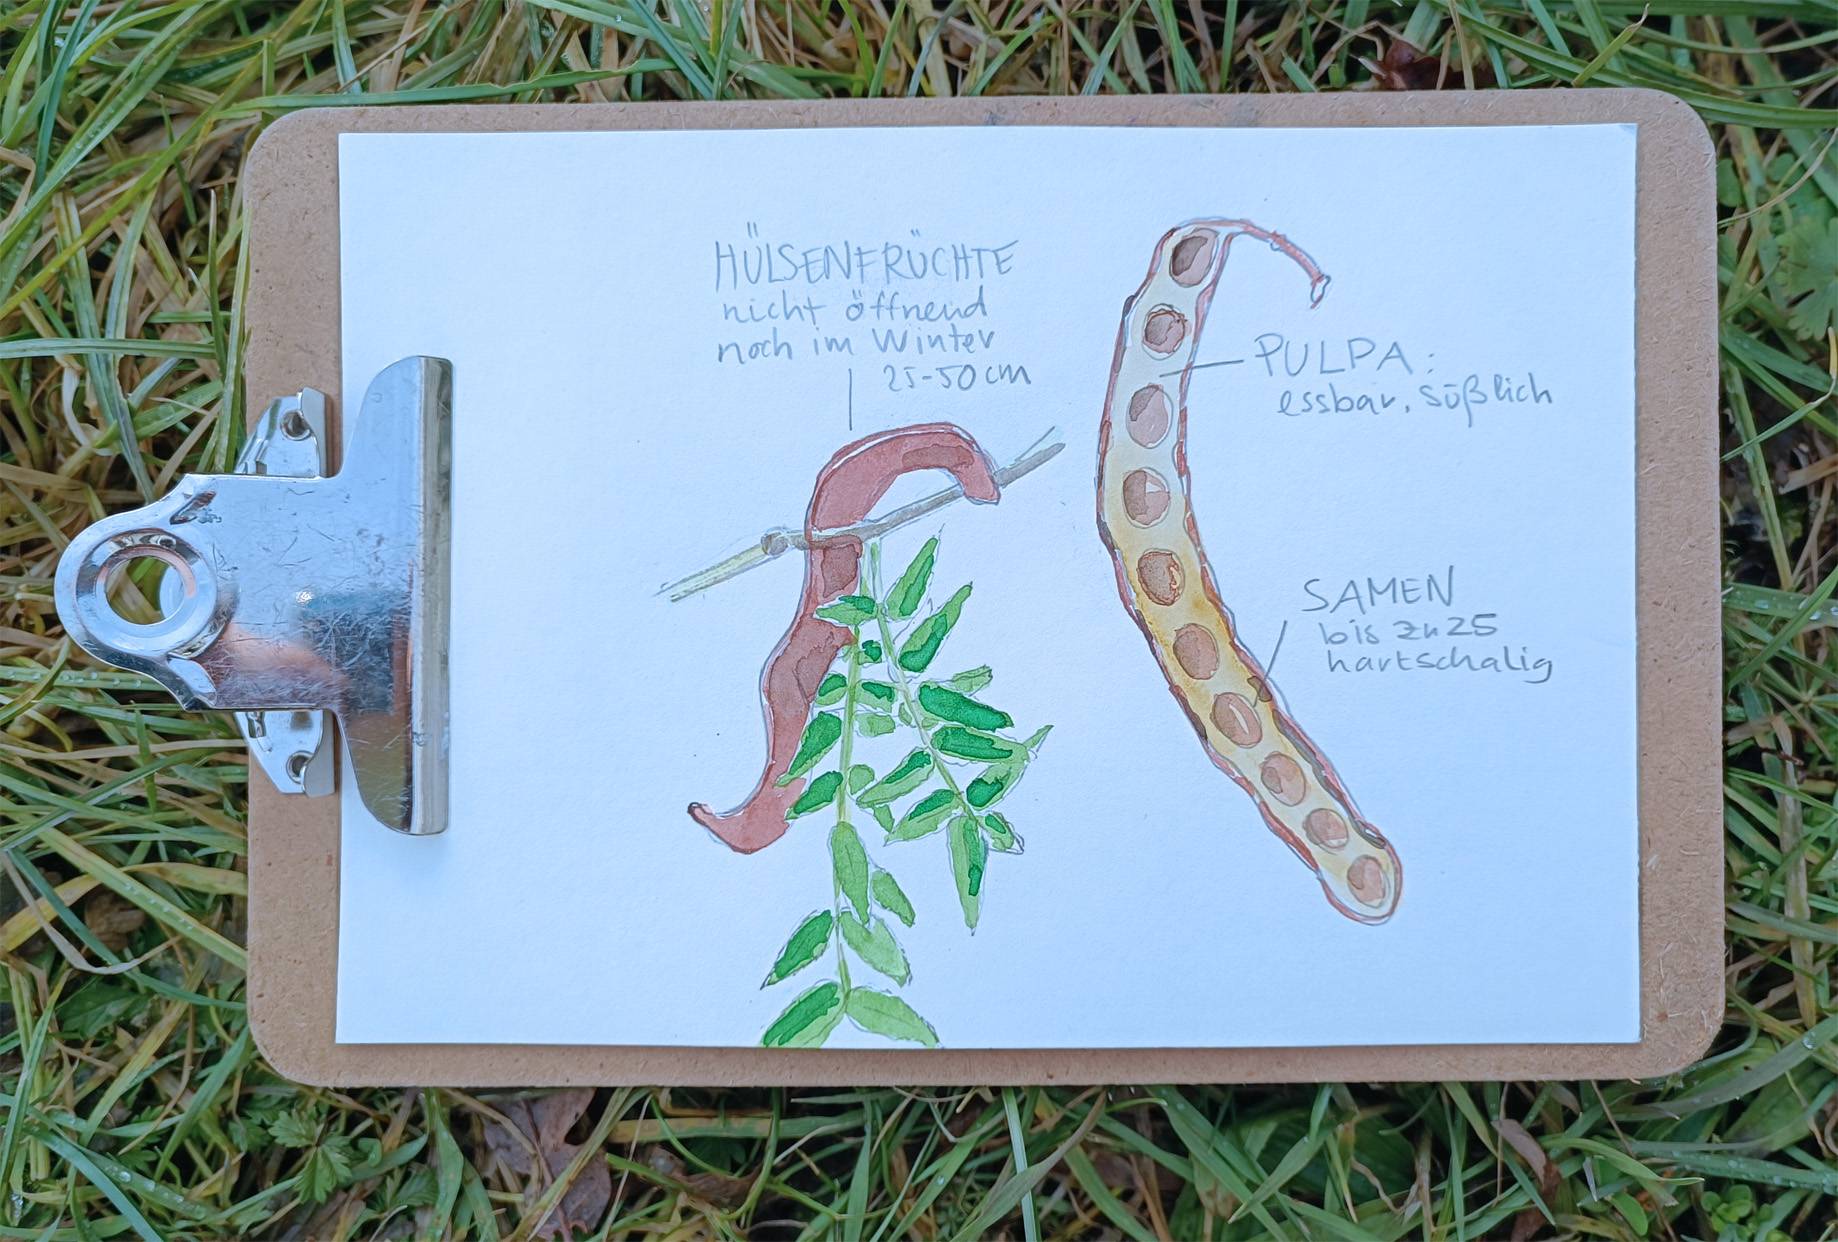 HÜLSENFRÜCHTE
nicht öffnend
noch im Winter
25-50cm
PULPA:
essbar, süßlich
SAMEN
bis zu 25
hartschalig